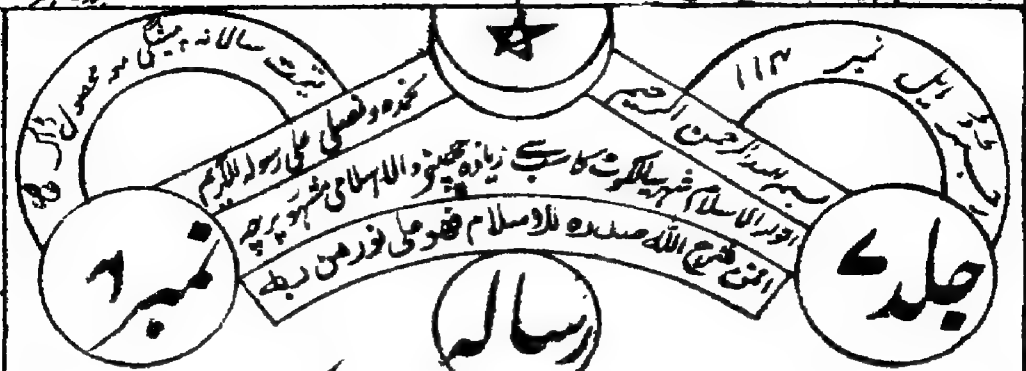 رجسٹرڈ ایل نمبر ۱۱۴
قیمت سالانہ پیشگی معہ محصول ڈاک
بسم اللہ الرحمن الرحیم
نحمدہ و نصلی علی رسولہ الکریم
انوار الاسلام شہر سیالکوٹ کا سب سے زیادہ چھپنے والا اسلامی مشہور پرچہ
افمن شرح اللہ صدرہ للاسلام فھو علی نور من ربہ
جلد ۷
نمبر ۶
رسالہ